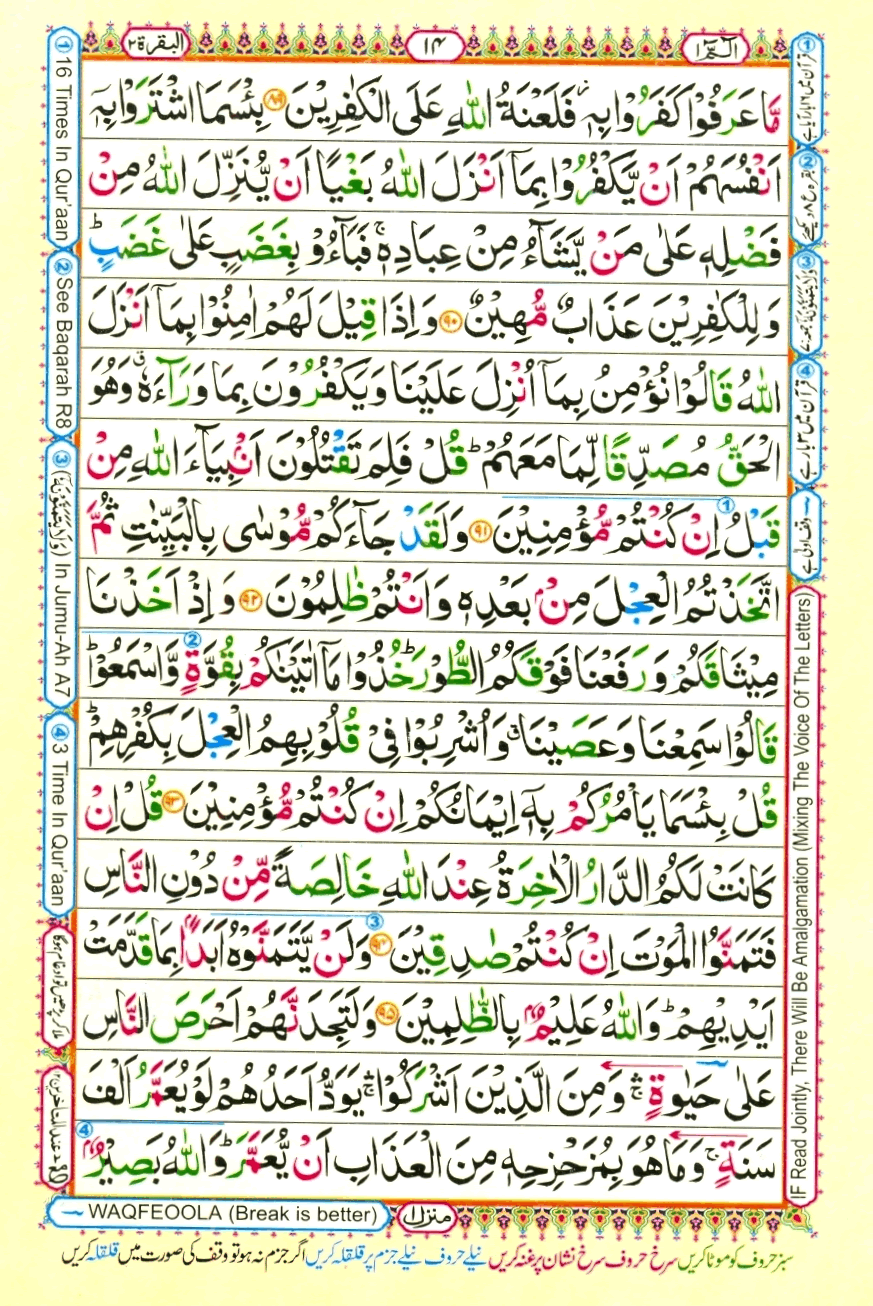 البقرة ٢
١٤
الٓمّٓ ١
مَّا عَرَفُوْا كَفَرُوْا بِهٖ ۫ فَلَعْنَةُ اللّٰهِ عَلَى الْكٰفِرِيْنَ ﴿۸۹﴾ بِئْسَمَا اشْتَرَوْا بِهٖۤ
اَنْفُسَهُمْ اَنْ يَّكْفُرُوْا بِمَاۤ اَنْزَلَ اللّٰهُ بَغْيًا اَنْ يُّنَزِّلَ اللّٰهُ مِنْ
فَضْلِهٖ عَلٰى مَنْ يَّشَآءُ مِنْ عِبَادِهٖ ۚ فَبَآءُوْ بِغَضَبٍ عَلٰى غَضَبٍ ؕ
وَ لِلْكٰفِرِيْنَ عَذَابٌ مُّهِيْنٌ ﴿۹۰﴾ وَ اِذَا قِيْلَ لَهُمْ اٰمِنُوْا بِمَاۤ اَنْزَلَ
اللّٰهُ قَالُوْا نُؤْمِنُ بِمَاۤ اُنْزِلَ عَلَيْنَا وَ يَكْفُرُوْنَ بِمَا وَرَآءَهٗ ۗ وَ هُوَ
الْحَقُّ مُصَدِّقًا لِّمَا مَعَهُمْ ؕ قُلْ فَلِمَ تَقْتُلُوْنَ اَنْۢبِيَآءَ اللّٰهِ مِنْ
قَبْلُ اِنْ كُنْتُمْ مُّؤْمِنِيْنَ ﴿۹۱﴾ وَ لَقَدْ جَآءَكُمْ مُّوْسٰى بِالْبَيِّنٰتِ ثُمَّ
اتَّخَذْتُمُ الْعِجْلَ مِنْۢ بَعْدِهٖ وَ اَنْتُمْ ظٰلِمُوْنَ ﴿۹۲﴾ وَ اِذْ اَخَذْنَا
مِيْثَاقَكُمْ وَ رَفَعْنَا فَوْقَكُمُ الطُّوْرَ ؕ خُذُوْا مَاۤ اٰتَيْنٰكُمْ بِقُوَّةٍ وَّ اسْمَعُوْا ؕ
قَالُوْا سَمِعْنَا وَ عَصَيْنَا ۗ وَ اُشْرِبُوْا فِيْ قُلُوْبِهِمُ الْعِجْلَ بِكُفْرِهِمْ ؕ
قُلْ بِئْسَمَا يَاْمُرُكُمْ بِهٖۤ اِيْمَانُكُمْ اِنْ كُنْتُمْ مُّؤْمِنِيْنَ ﴿۹۳﴾ قُلْ اِنْ
كَانَتْ لَكُمُ الدَّارُ الْاٰخِرَةُ عِنْدَ اللّٰهِ خَالِصَةً مِّنْ دُوْنِ النَّاسِ
فَتَمَنَّوُا الْمَوْتَ اِنْ كُنْتُمْ صٰدِقِيْنَ ﴿۹۴﴾ وَ لَنْ يَّتَمَنَّوْهُ اَبَدًۢا بِمَا قَدَّمَتْ
اَيْدِيْهِمْ ؕ وَ اللّٰهُ عَلِيْمٌۢ بِالظّٰلِمِيْنَ ﴿۹۵﴾ وَ لَتَجِدَنَّهُمْ اَحْرَصَ النَّاسِ
عَلٰى حَيٰوةٍ ۛۚ وَ مِنَ الَّذِيْنَ اَشْرَكُوْا ۛۚ يَوَدُّ اَحَدُهُمْ لَوْ يُعَمَّرُ اَلْفَ
سَنَةٍ ۚ وَ مَا هُوَ بِمُزَحْزِحِهٖ مِنَ الْعَذَابِ اَنْ يُّعَمَّرَ ؕ وَ اللّٰهُ بَصِيْرٌۢ
① 16 Times In Qur'aan
② See Baqarah R8
③ (وَلَا يَتَمَنَّوْنَهٗ) In Jumu-Ah A7
④ 3 Time In Qur'aan
IF Read Jointly, There Will Be Amalgamation (Mixing The Voice Of The Letters)
WAQFEOOLA (Break is better)
منزل ١
سبز حروف کو موٹا کریں سرخ حروف سرخ نشان پر غنہ کریں نیلے حروف نیلے جزم پر قلقلہ کریں اگر جزم نہ ہو تو وقف کی صورت میں قلقلہ کریں